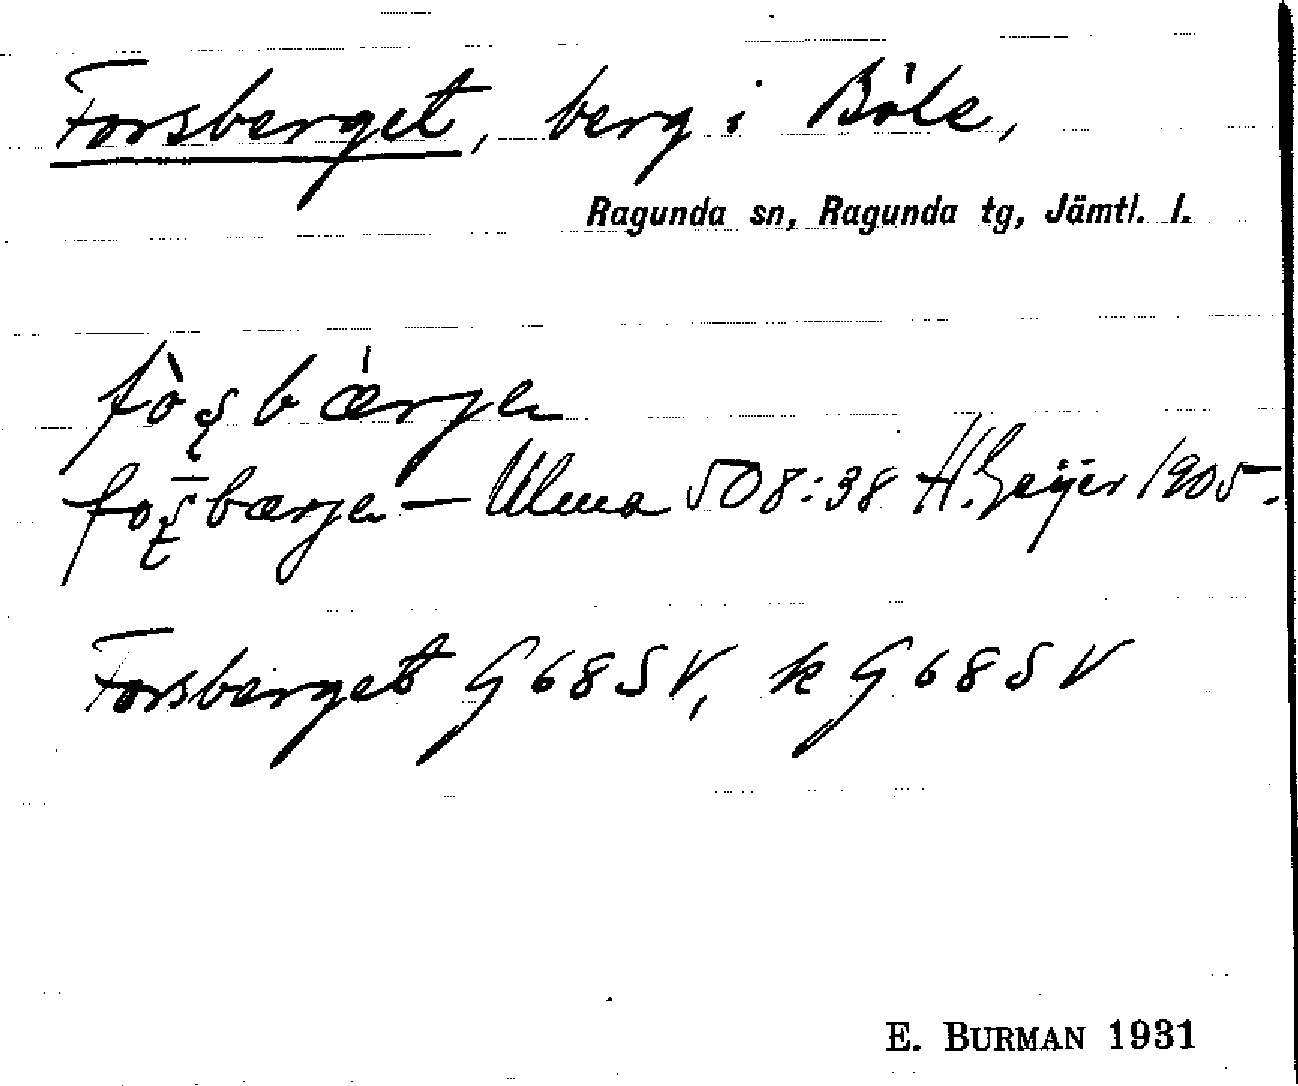 Forsberget, berg i Böle,
Ragunda sn, Ragunda tg, Jämtl. l.
fòʂbærje
foʂbærje – Ulma 508:38 H. Geijer 1905.
Forsberget G68SV, k G68SV
E. BURMAN 1931